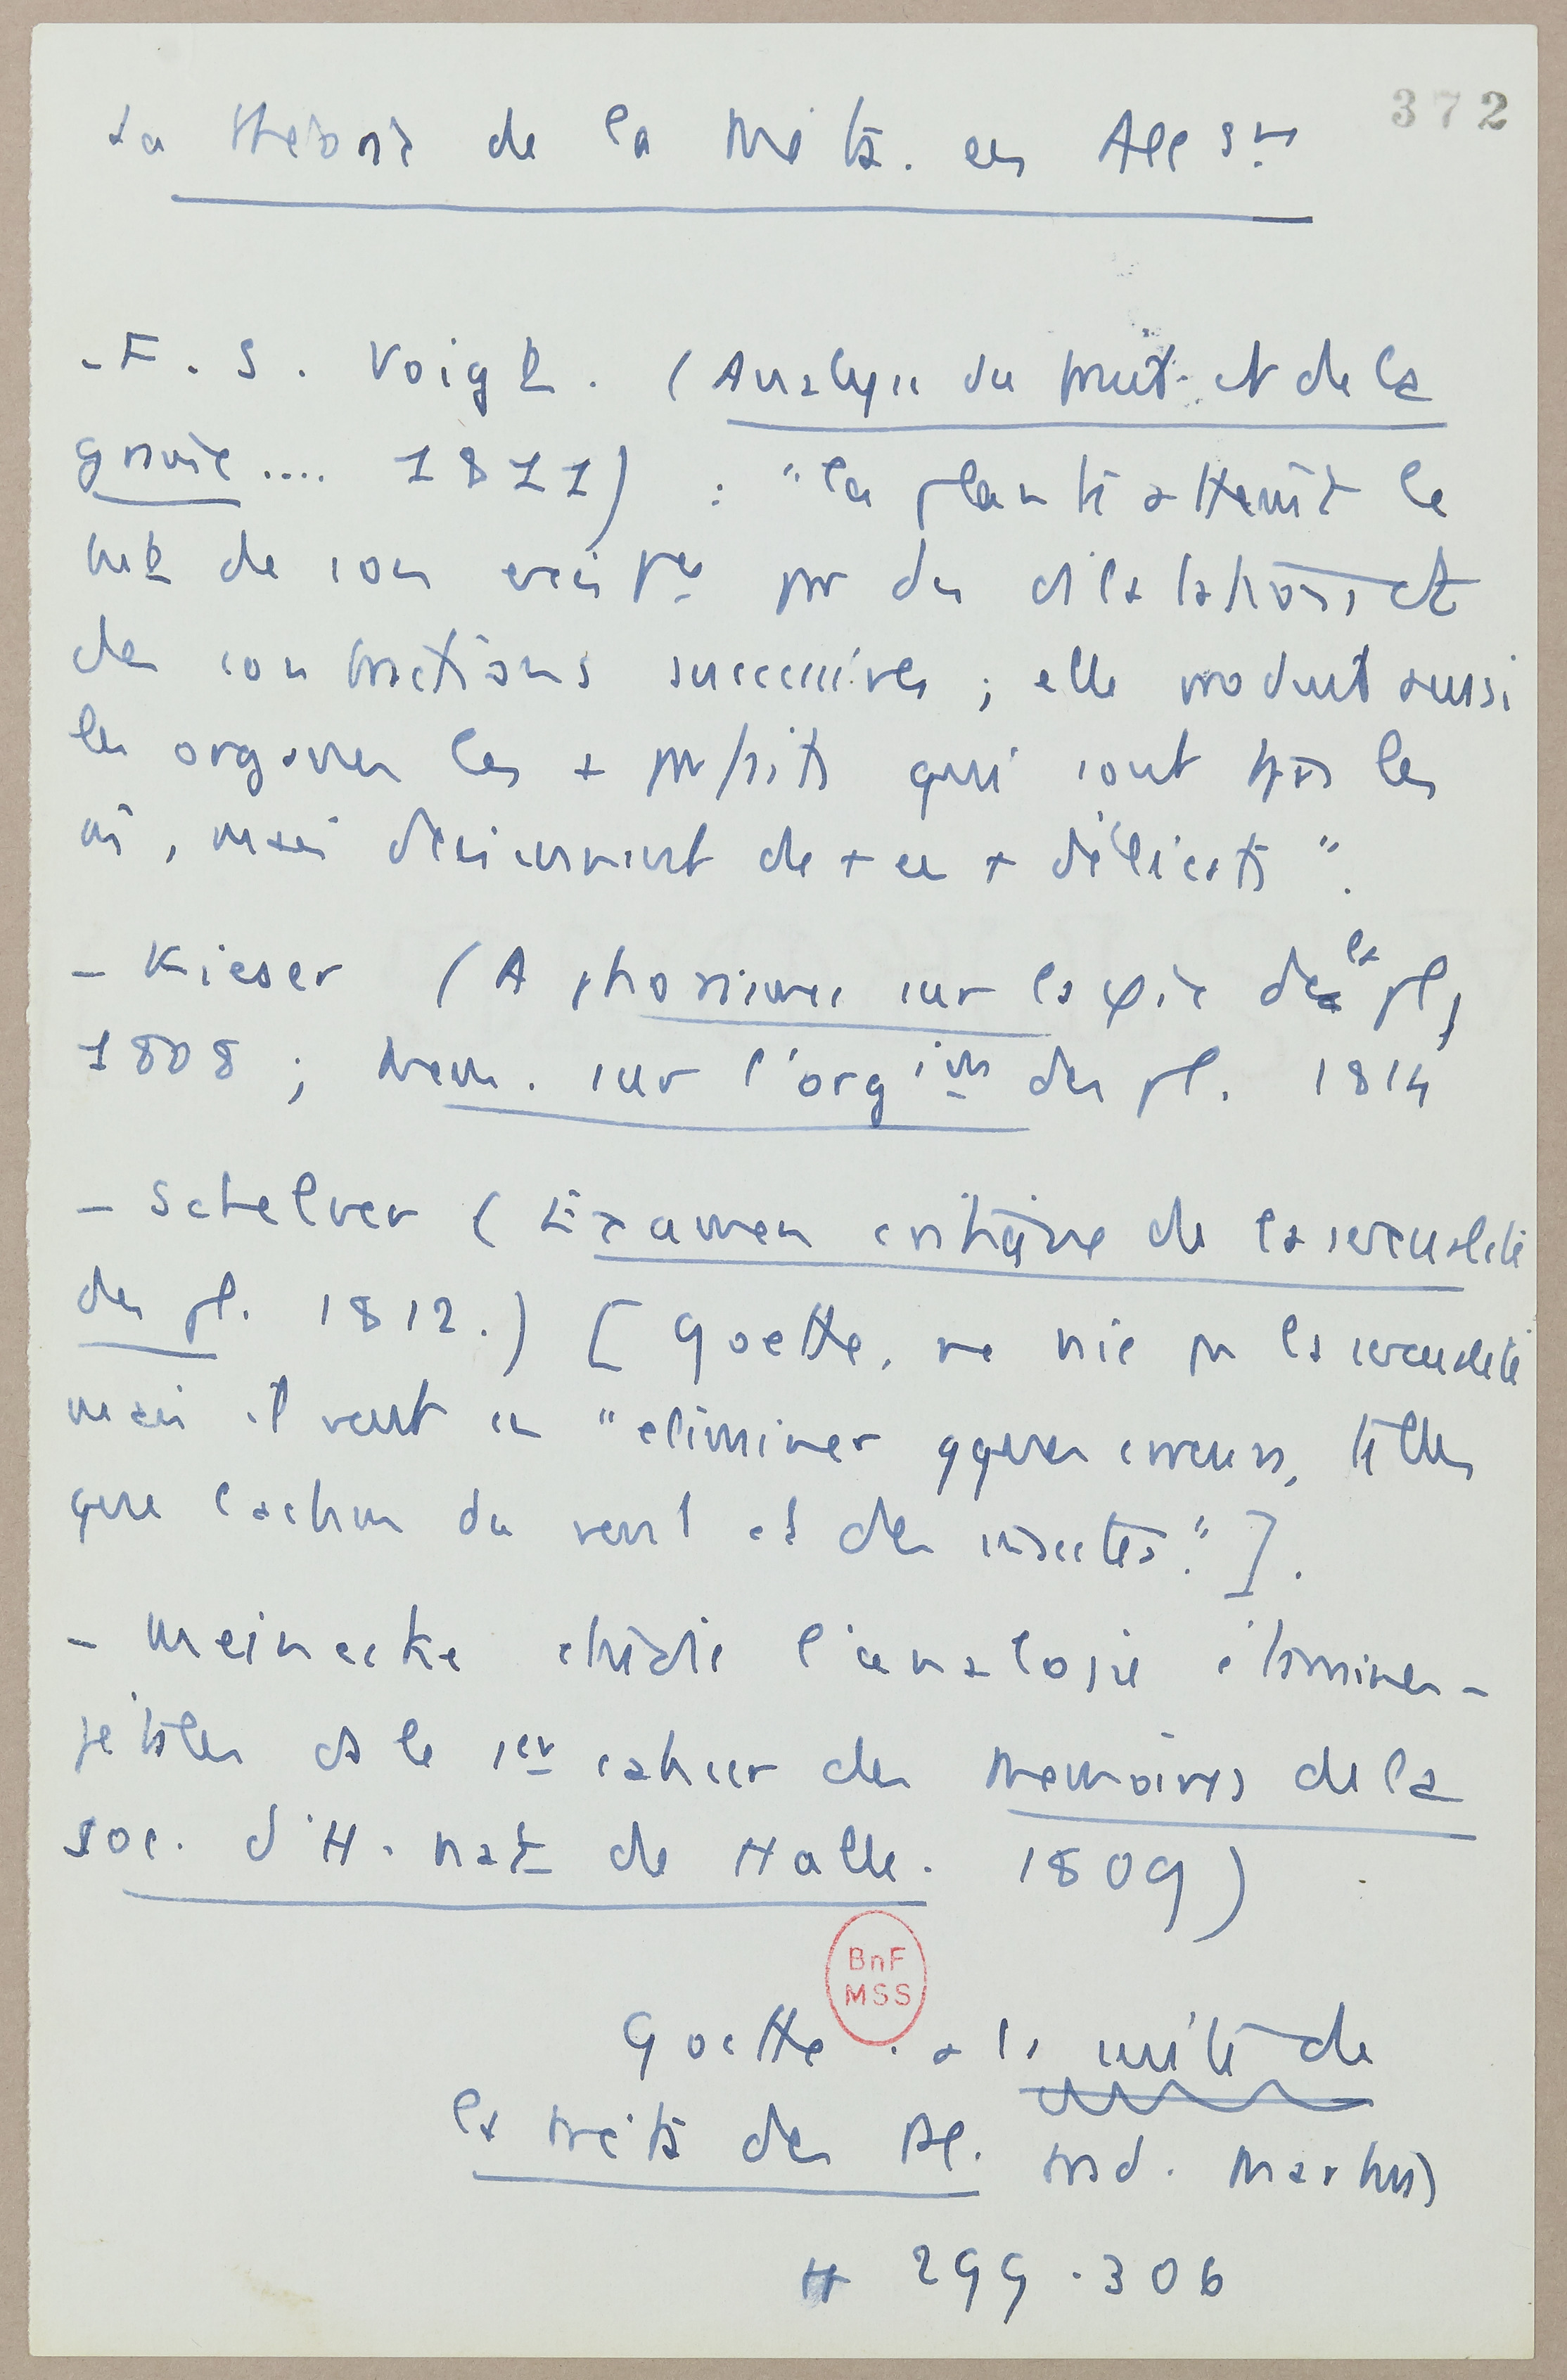 372
La théorie de la Méta. en All gne
- F. S. Voigt. (Analyse du fruit et de la
graine .... 1811) : "la plante atteint le
but de son exist ce par des dilatations et
des contractions successives ; elle produit aussi
les organes les + parfaits qui sont tjrs les
mais deviennent de + en + délicats".
- Kieser (Aphorismes sur la φie de la pl,
1808 ; Mem. sur l'org ion des pl. 1814
- Schelver (Examen critique de la sexualité
des pl. 1812.) [Goethe, ne nie pas la sexualité
mais il veut en "éliminer qques erreurs, telles
que l'action du vent et des insectes."].
- Meinecke étudie l'analogie
ds le 1er cahier des Mémoires de la
Soc. d'H. nat de Halle. 1809)
BnF
MSS
Goethe. de
la méta des pl. trad. Martins
299-306